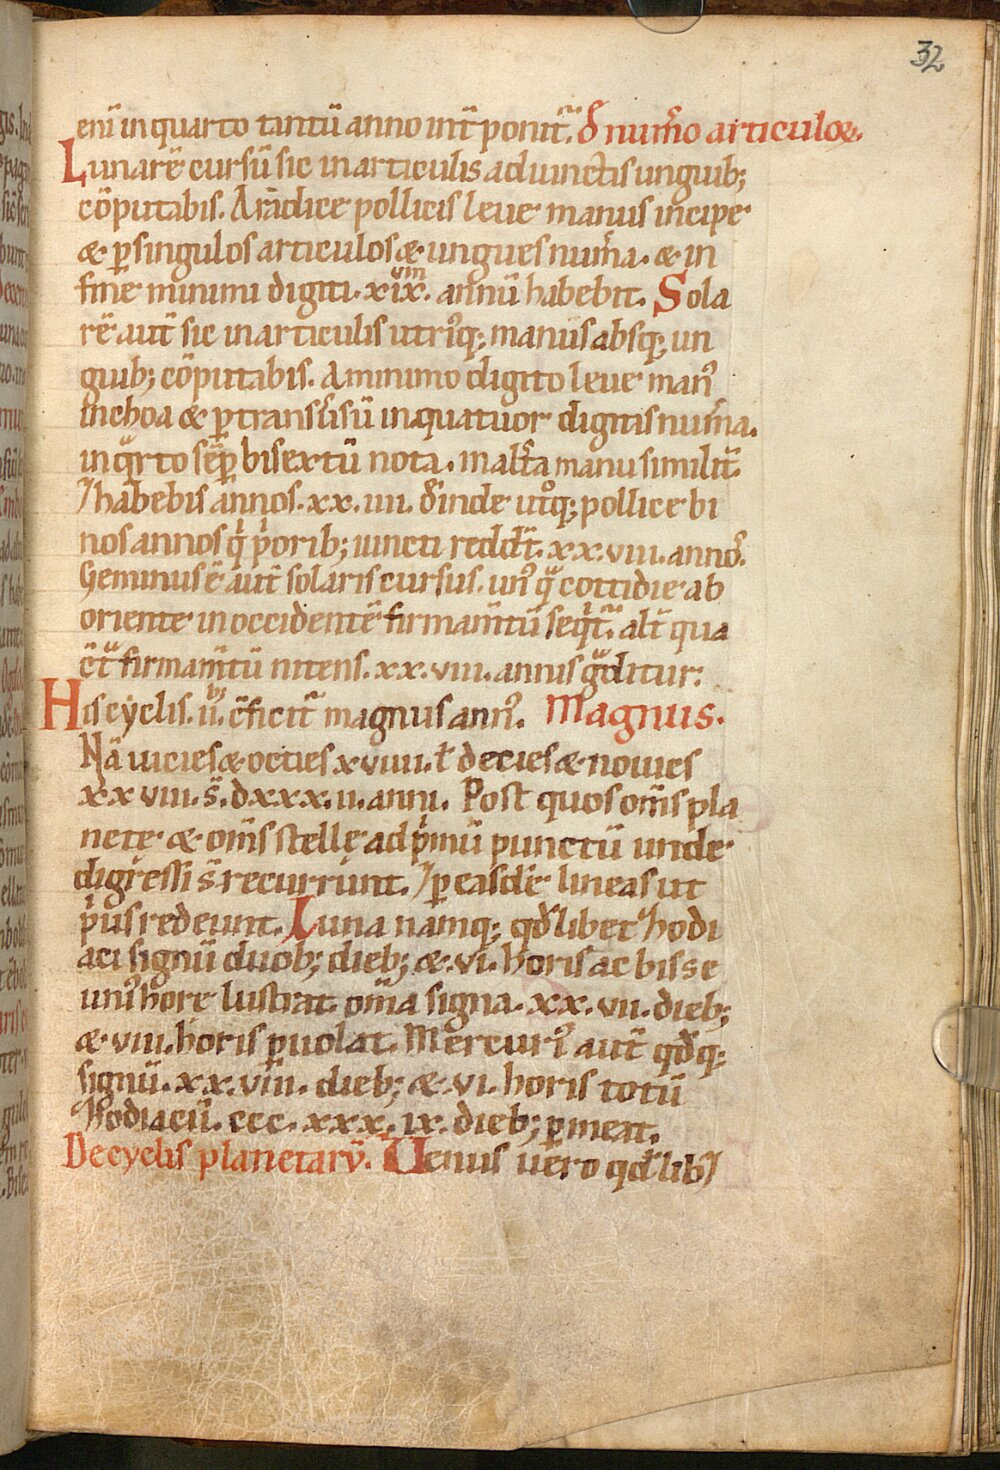 32
enī in quarto tantū anno int̄ponit᷑. đ num̄o articuloꝝ.
Lunarē cursū sic in articulis adiunctis unguib;
cōputabis. A radice pollicis leue manus incipe
& ꝑ singulos articulos & ungues num̄a. & in
fine minimi digiti. xıx̄. annū habebit. Sola
rē aut̄ sic in articulis utriꝰq; manus absq; un
guib; cōputabis. A minimo digito leue manꝰ
inchoa & ꝑ transũsū in quatuor digitis num̄a.
in qͣrto sēꝑ bisextū nota. in alt̄a manu similit̄
habebis annos. xx. iiii. đinde utͦq; pollice bi
nos annos qͥ pͥorib; iuncti redd̄t. xx. viii. annoͬ.
Geminus ē aut̄ solaris cursus. unꝰ qͦ cottidie ab
oriente in occidentē firmam̄tū seqͥt᷑. alt̄ qua
ct̄ͣ firmam̄tū nitens. xx. viii. annis gͣditur:
His cyclis. ii.ᵇꝰ c̄ficit᷑ magnus annꝰ. Magnus.
Nā uicies & octies xviiii. ł decies & nouies
xx viii. s̄. dxxx. ii. anni. Post quos om̄s pla
nete & om̄s stellę ad pͥmū punctū unde
digressi s̄ recurrunt. ꝑ easdē lineas ut
pͥus redeunt. Luna namq; qđlibet hodi
aci signū duob; dieb; & vi. horis ac bisse
unꝰ hore lustrat. om̄a signa. xx. vii. dieb;
& viii. horis ꝑuolat. Mercuriꝰ aut̄ qđq;
signū. xx. viii. dieb; & vi. horis totū
hodiacū. ccc. xxx. ix. dieb; ꝑmeat.
De cyclis planetarū. Uenus uero qđlib